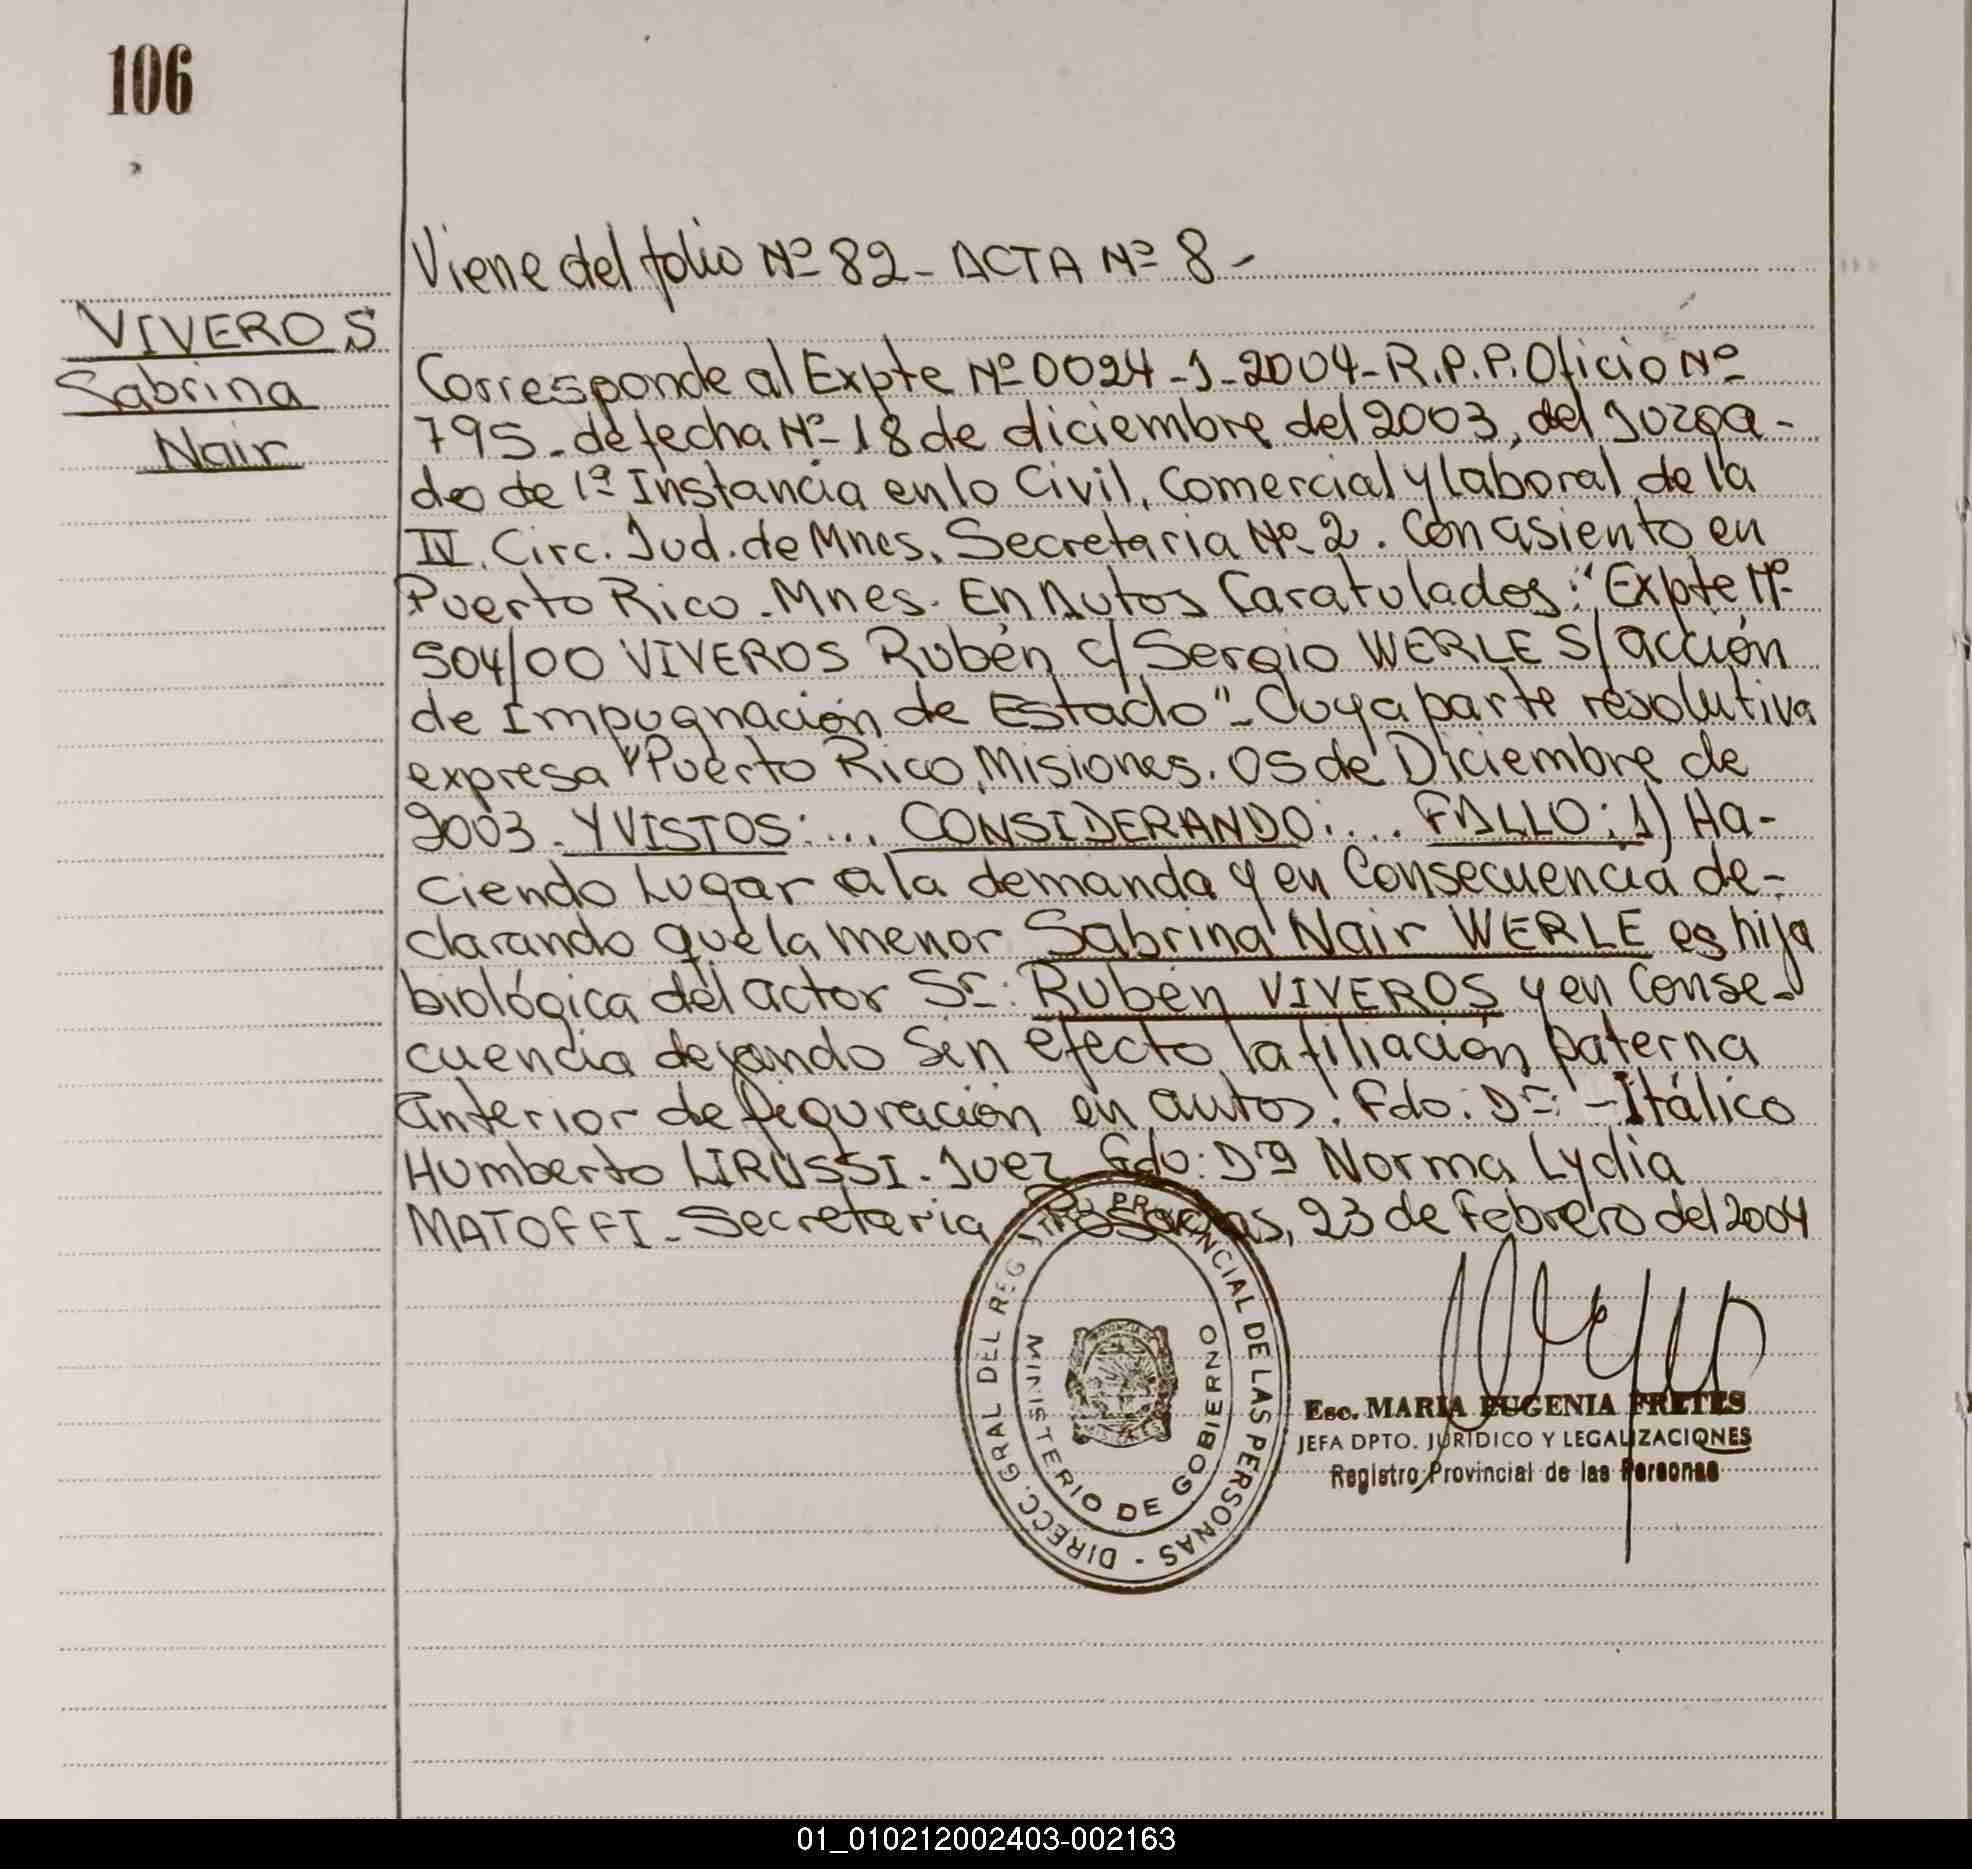 106
Viene del folio Nº 82 - ACTA Nº 8 -
VIVEROS
Sabrina
Nair
Corresponde al Expte Nº 0024-1-2004-R.P.P. Oficio Nº
795. de fecha Nº 18 de diciembre del 2003, del Juzga-
do de 1ª Instancia en lo Civil, Comercial y laboral de la
IV. Circ. Jud. de Mnes. Secretaria Nº 2. Con asiento en
Puerto Rico. Mnes. En Autos Caratulados: "Expte Nº
504/00 VIVEROS Rubén c/ Sergio WERLE S/ acción
de Impugnación de Estado"- Cuya parte resolutiva
expresa "Puerto Rico, Misiones. 05 de Diciembre de
2003. Y VISTOS:... CONSIDERANDO:... FALLO: 1) Ha-
ciendo Lugar a la demanda y en Consecuencia de-
clarando que la menor Sabrina Nair WERLE es hija
biológica del actor Sr: Rubén VIVEROS y en Conse-
cuencia dejando Sin efecto la filiación paterna
anterior de figuración en autos! Fdo: Dr - Itálico
Humberto LIRUSSI. Juez Fdo: Dra Norma Lydia
MATOFFI - Secretaria Posadas, 23 de Febrero del 2004
DIRECC. GRAL DEL REG PROVINCIAL DE LAS PERSONAS -
MINISTERIO DE GOBIERNO
Esc. MARIA EUGENIA FRETES
JEFA DPTO. JURIDICO Y LEGALIZACIONES
Registro Provincial de las Personas
01_010212002403-002163